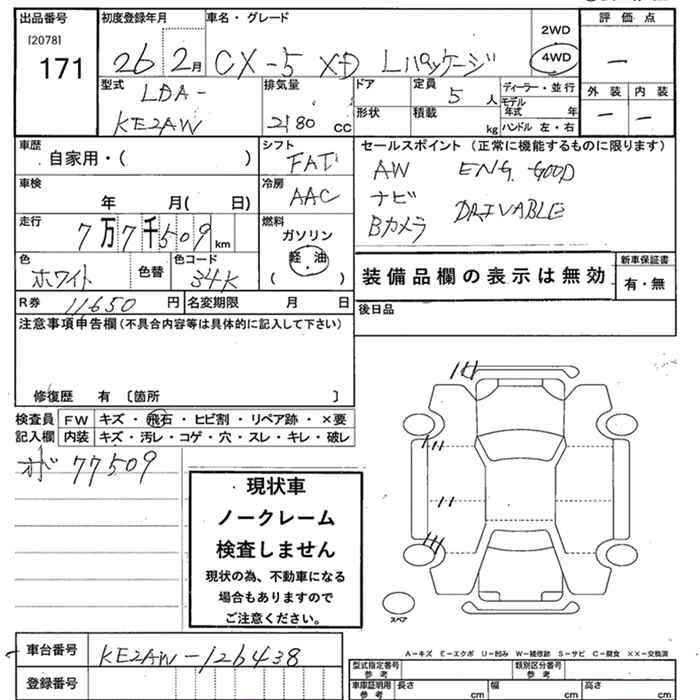 出品番号
[2078]
171
初度登録年月
26 2月
車名・グレード
CX-5 XD Lパッケージ
2WD
4WD
評価点
—
外装 内装
— —
型式
LDA-
KE2AW
排気量
2180 cc
ドア
形状
定員
5 人
積載
kg
ディーラー・並行
モデル年式 年
ハンドル 左・右
車歴
自家用・( )
シフト
FAT
セールスポイント (正常に機能するものに限ります)
AW ENG. GOOD
ナビ
DRIVABLE
Bカメラ
車検
年 月( 日)
冷房
AAC
走行
7万7千509 km
燃料
ガソリン
軽・油
( )
色
ホワイト
色替
色コード
34K
装備品欄の表示は無効
新車保証書
有・無
R券 11650 円
名変期限 月 日
後日品
注意事項申告欄(不具合内容等は具体的に記入して下さい)
修復歴 有 〔箇所 〕
検査員
記入欄
FW キズ・飛石・ヒビ割・リペア跡・×要
内装 キズ・汚レ・コゲ・穴・スレ・キレ・破レ
オド 77509
現状車
ノークレーム
検査しません
現状の為、不動車になる
場合もありますので
ご注意ください。
スペア
車台番号
KE2AW-126438
登録番号
A-キズ E-エクボ U-凹み W-補修跡 S-サビ C-腐食 ××-交換済
型式指定番号
参考
類別区分番号
参考
車庫証明用
参考
長さ cm
幅 cm
高さ cm